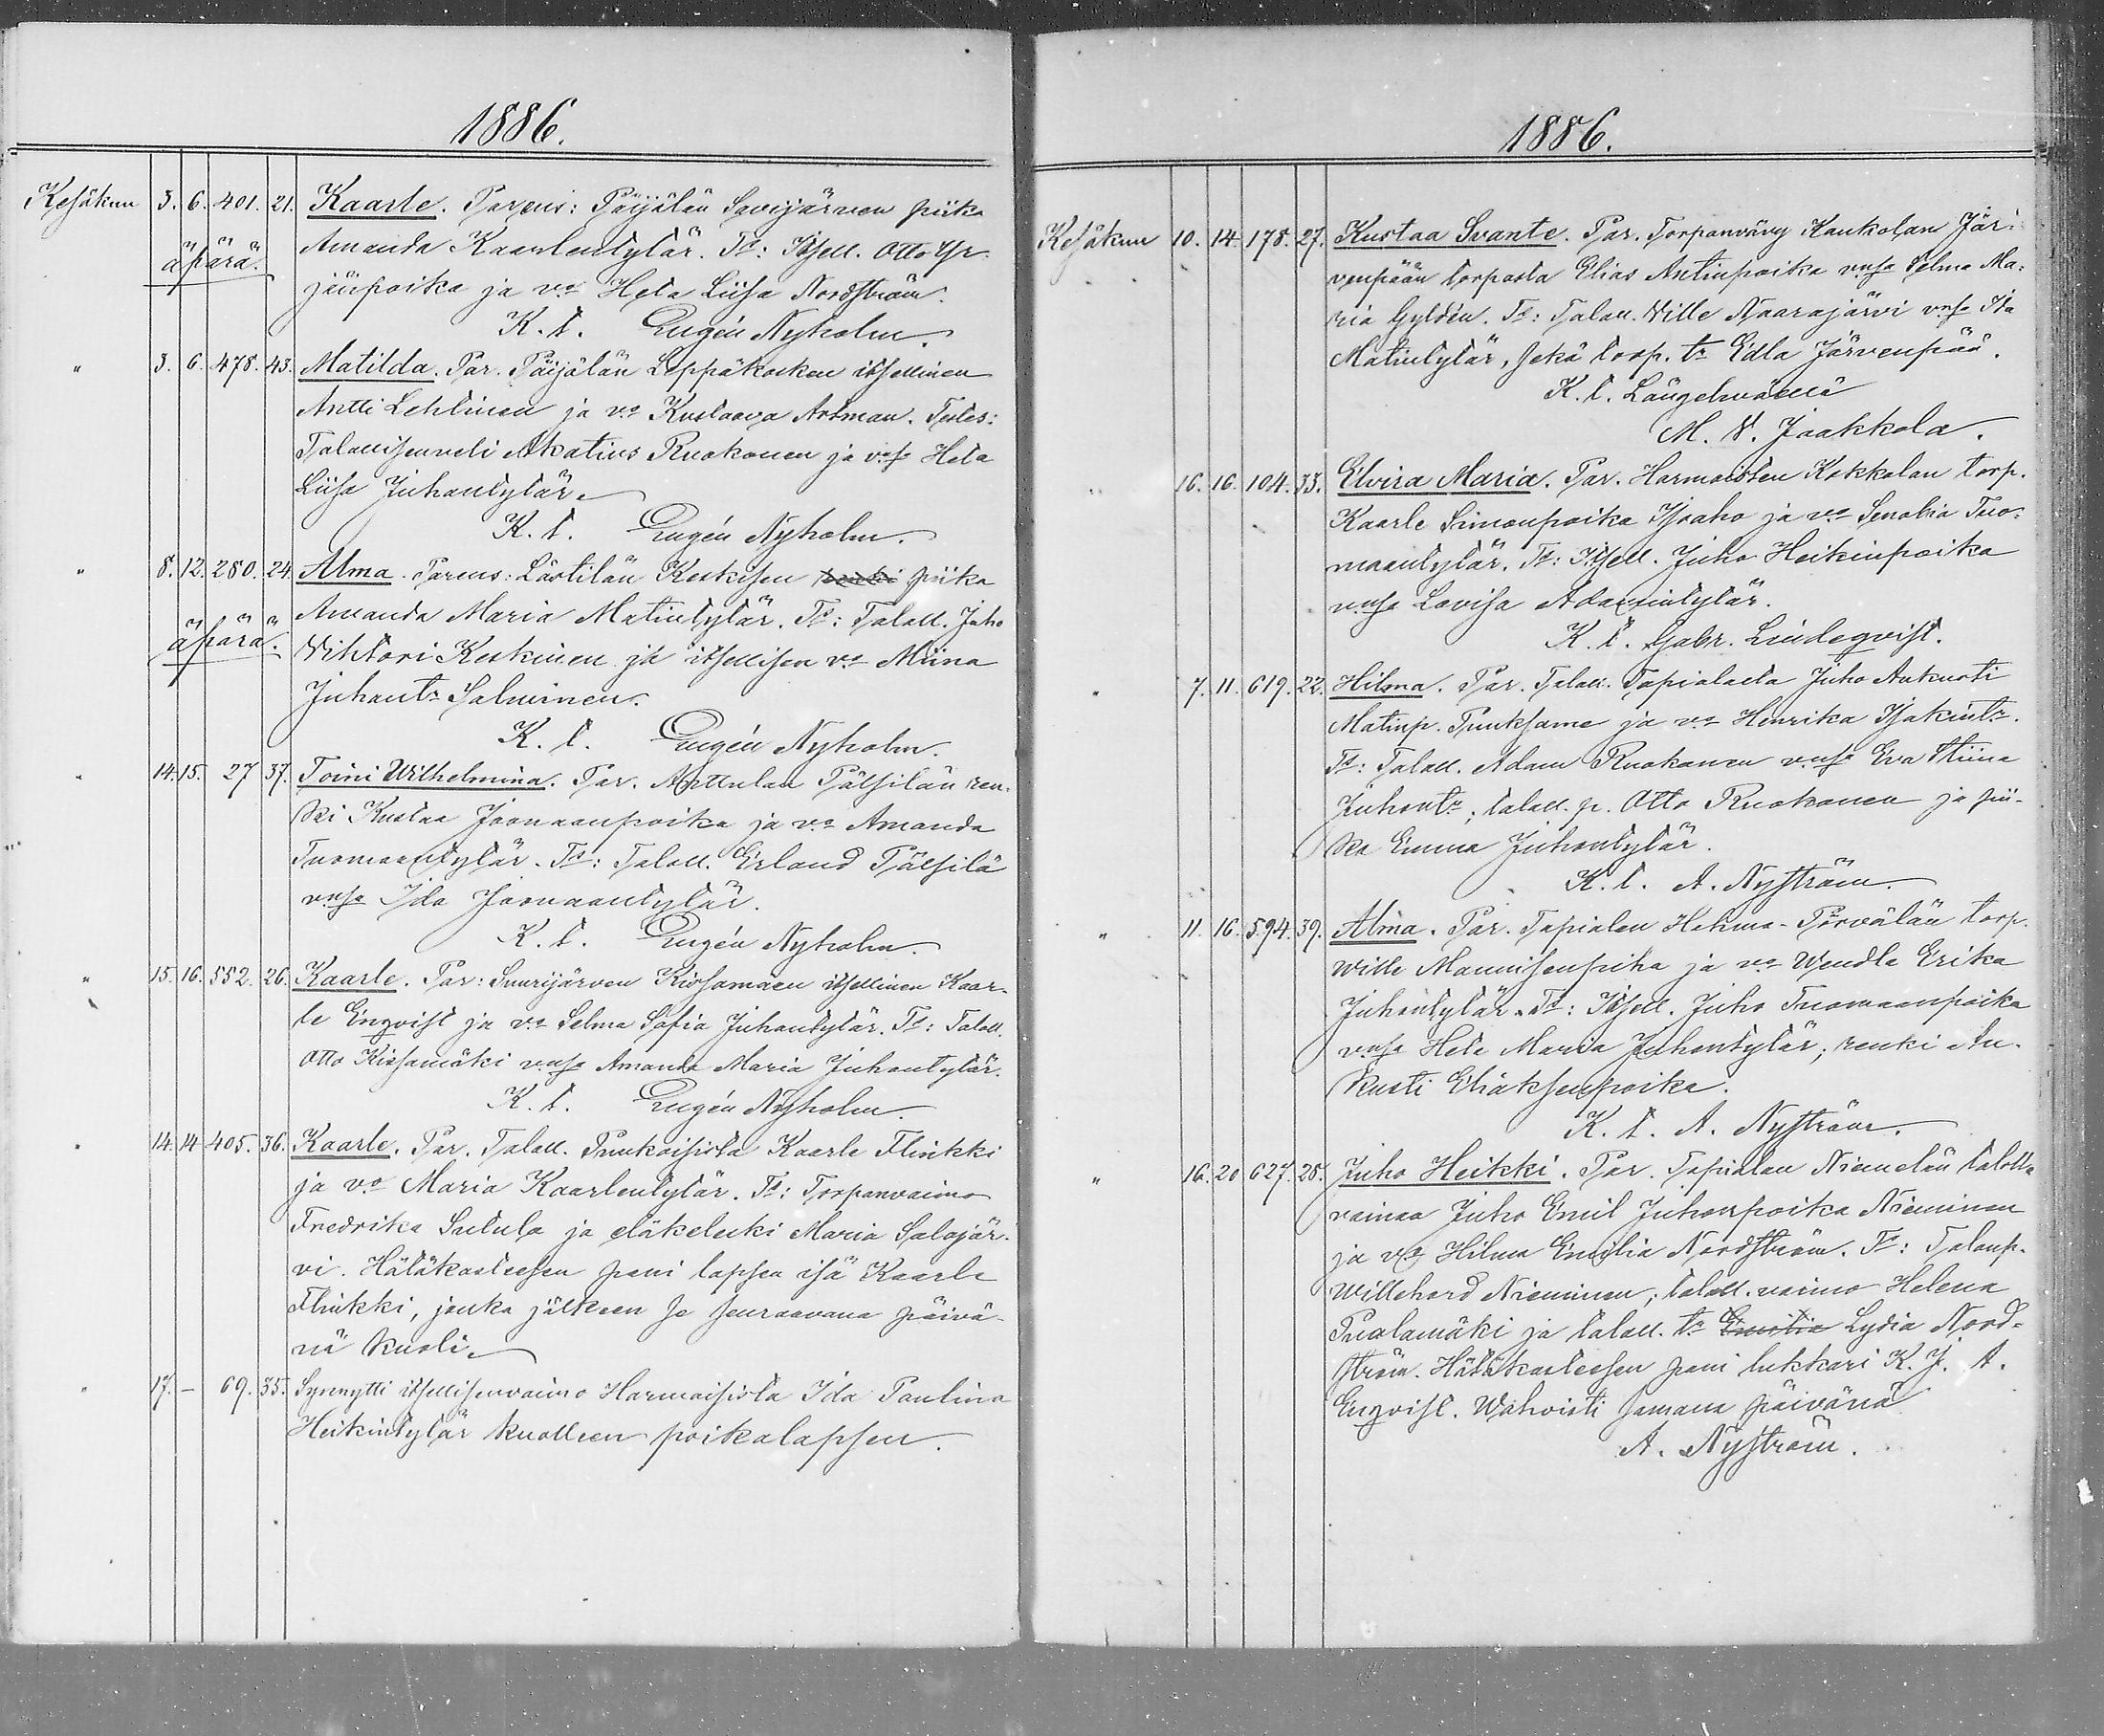 1886.
Kesäkuu 3. 6. 401. 21. Kaarle. Parens: Päijälän Savijärven piika
äpärä. Amanda Kaarlentytär. Ts: Itsell. Otto Yr-
jänpoika ja vo Heta Liisa Nordström.
K. t. Eugén Nyholm.
" 3. 6. 478. 43. Matilda. Par. Päijälän Leppäkosken itsellinen
Antti Lehtinen ja vo Kustaava Artman. Testes:
Talollisenveli Akatius Ruokonen ja vnsa Heta
Liisa Juhantytär.
K. t. Eugén Nyholm.
" 8. 12. 280. 24. Alma. Parens: Lästilän Keskisen renki piika
äpärä. Amanda Maria Matintytär. Ts: Talall. Juho
Wihtori Keskinen ja itsellisen vo Miina
Juhantr Salminen.
K. t. Eugén Nyholm.
" 14. 15. 27 37. Toini Wilhelmina. Par. Arttulan Pätsilän ren-
ki Kustaa Joonaanpoika ja vo Amanda
Tuomaantytär. Ts: Talall. Erland Pätsilä
vnsa Ida Joonaantytär.
K. t. Eugén Nyholm.
" 15. 16. 552. 26. Kaarle. Par: Suurijärven Kissamäen itsellinen Kaar-
le Enqvist ja vo Selma Sofia Juhantytär. Ts: Talall.
Otto Kissamäki vnsa Amanda Maria Juhantytär.
K. t. Eugén Nyholm.
" 14. 14 405. 36. Kaarle. Par. Talall. Puukaisista Kaarle Flinkki
ja vo Maria Kaarlentytär. Ts: Torpanvaimo
Fredrika Sutula ja eläkeleski Maria Salajär-
vi. Hätäkasteesen pani lapsen isä Kaarle
Flinkki, jonka jälkeen se seuraavana päivä-
nä kuoli.
" 17. - 69. 35. Synnytti itsellisenvaimo Harmaisista Ida Paulina
Heikintytär kuolleen poikalapsen.
1886.
Kesäkuu 10. 14. 178. 27. Kustaa Svante. Par. Torpanväny Kaukolan Jär-
venpään torpasta Elias Antinpoika vnsa Selma Ma-
ria Gyldén. Ts: Talall. Wille Naarajärvi vnsa Ida
Matintytär, sekä torp. tr Edla Järvenpää.
K. t. Längelmäellä
M. V. Jaakkola.
" 16. 16. 104. 33. Elvira Maria. Par. Harmaisten Kokkolan torp.
Kaarle Simonpoika Isoaho ja vo Senobia Tuo-
maantytär. Ts: Itsell. Juho Heikinpoika
vnsa Lovisa Adamintytär.
K. t. Gabr. Lindeqvist.
" 7. 11. 619. 22. Hilma. Par. Talall. Tapialasta Juho Aukusti
Matinp. Punksame ja vo Henrika Isakintr.
Ts: Talall. Adam Ruokonen vnsa Eva Stiina
Juhontr; talall. p. Otto Ruokonen ja pii-
ka Emma Juhontytär.
K. t. A. Nyström.
" 11. 16. 594. 39. Alma. Par. Tapialan Hehma-Pörvälän torp.
Wille Maunisenpoika ja vo Wendla Erika
Juhontytär. Ts: Itsell. Juho Tuomaanpoika
vnsa Heta Maria Juhontytär; renki Au-
kusti Eliaksenpoika.
K. t. A. Nyström.
" 16. 20 627. 28. Juho Heikki. Par. Tapialan Niemelän talolla
vainaa Juho Emil Juhonpoika Nieminen
ja vo Hilma Emilia Nordström. Ts: Talonp.
Willehard Nieminen; talall. vaimo Helena
Pualamäki ja talall. tr Emilia Lydia Nord-
ström. Hätäkasteesen pani lukkari K. J. A.
Enqvist. Wahvisti samana päivänä
A. Nyström.